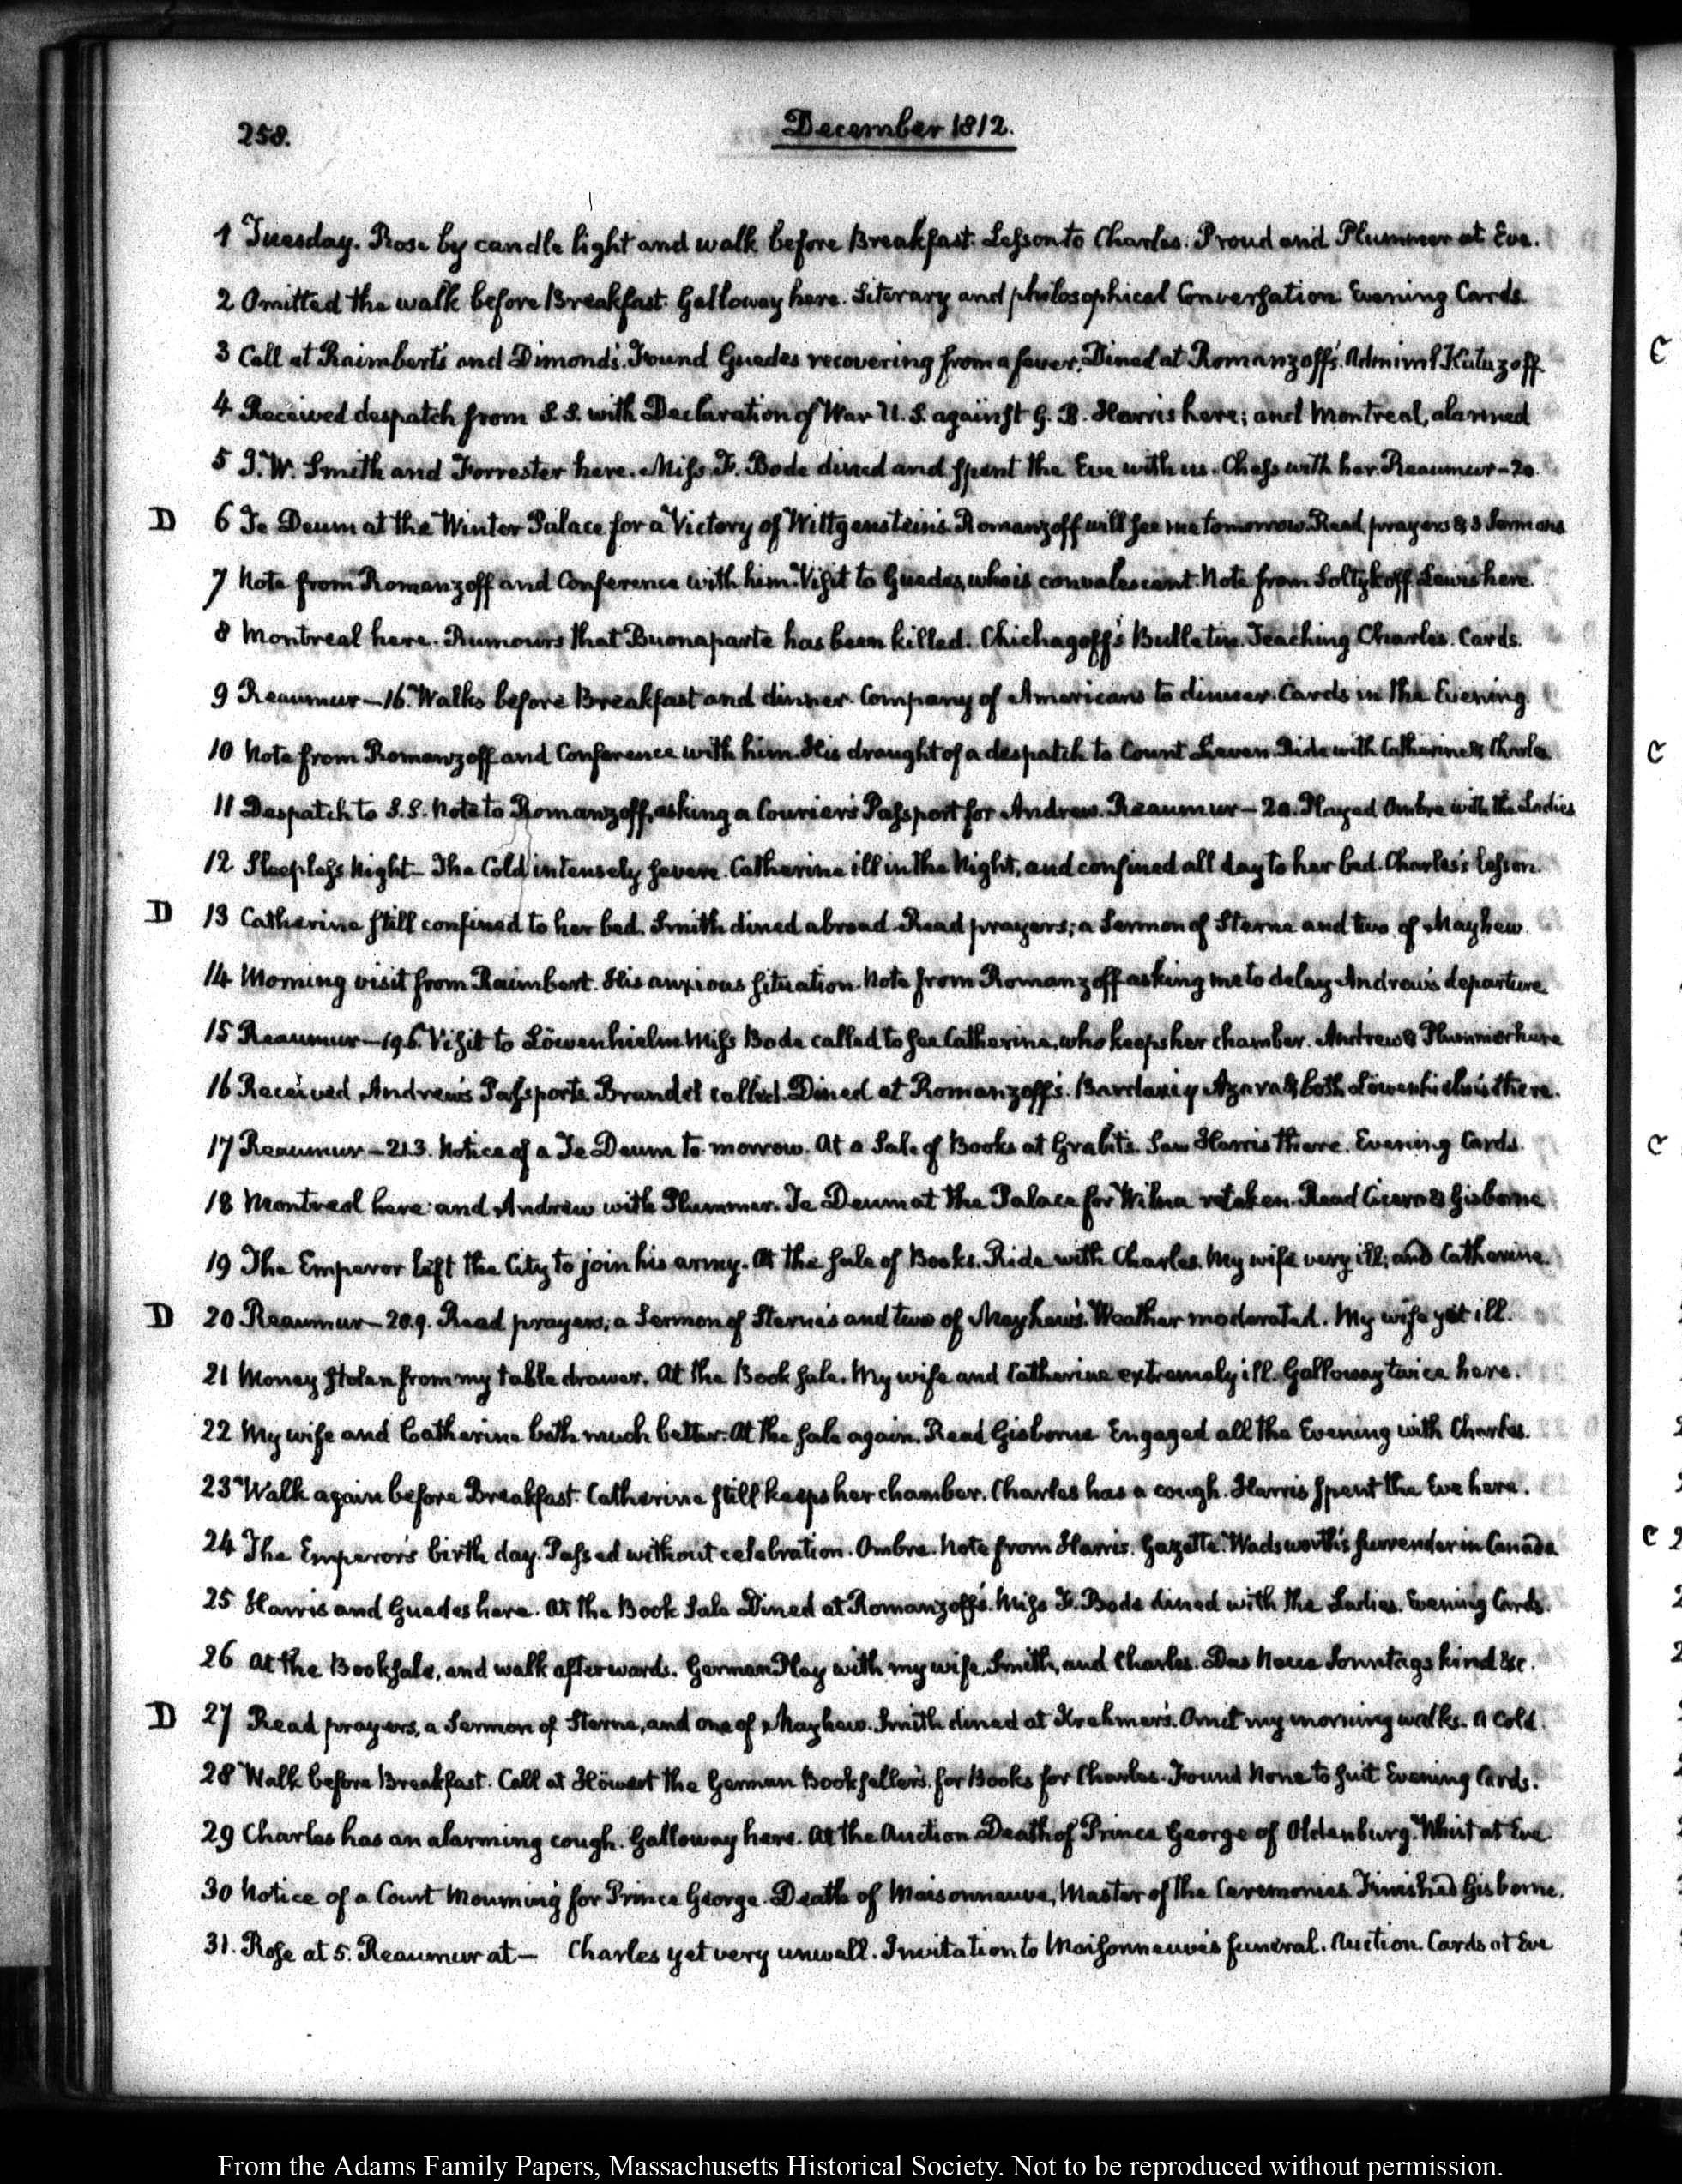 258.
December 1812.
1 Tuesday. Rose by candle light and walk before Breakfast. Lesson to Charles. Proud and Plummer at Eve.
2 Omitted the walk before Breakfast. Galloway here. Literary and philosophical Conversation. Evening Cards.
3 Call at Raimbert's and Dimond's. Found Guedes recovering from a fever. Dined at Romanzoff's. Admiral Kutuzoff
4 Received despatch from S.S. with Declaration of War U.S. against G.B. Harris here; and Montreal, alarmed
5 J. W. Smith and Forrester here. Miss F. Bode dined and spent the Eve with us. Chess with her. Reaumur–20.
D 6 Te Deum at the Winter Palace for a Victory of Wittgenstein's. Romanzoff will see me tomorrow. Read prayers & 3 Sermons
7 Note from Romanzoff and Conference with him. Visit to Guedes, who is convalescent. Note from Soltykoff. Lewis here.
8 Montreal here. Rumours that Buonaparte has been killed. Chichagoff's Bulletin. Teaching Charles. Cards.
9 Reaumur–16. Walks before Breakfast and dinner. Company of Americans to dinner. Cards in the Evening.
10 Note from Romanzoff and Conference with him. His draught of a despatch to Count Lieven. Ride with Catherine & Charles
11 Despatch to S.S. Note to Romanzoff, asking a Courier's Passport for Andrew. Reaumur–20. Played Ombre with the Ladies
12 Sleepless Night– The Cold intensely severe. Catherine ill in the Night, and confined all day to her bed. Charles's lesson.
D 13 Catherine still confined to her bed. Smith dined abroad. Read prayers; a Sermon of Sterne and two of Mayhew.
14 Morning visit from Raimbert. His anxious situation. Note from Romanzoff asking me to delay Andrew's departure
15 Reaumur–19.6. Visit to Löwenhielm. Miss Bode called to see Catherine, who keeps her chamber. Andrew & Plummer here
16 Received Andrew's Passports. Brandel called. Dined at Romanzoff's. Bardaxi y Azara & both Löwenhielms there.
17 Reaumur–21.3. Notice of a Te Deum to morrow. At a Sale of Books at Grabit's. Saw Harris there. Evening Cards.
18 Montreal here: and Andrew with Plummer. Te Deum at the Palace for Wilna retaken. Read Cicero & Gisborne
19 The Emperor left the City to join his army. At the sale of Books. Ride with Charles. My wife very ill; and Catherine.
D 20 Reaumur–20.9. Read prayers; a Sermon of Sterne's and two of Mayhew's. Weather moderated. My wife yet ill.
21 Money stolen from my table drawer. At the Book sale. My wife and Catherine extremely ill. Galloway twice here.
22 My wife and Catherine both much better. At the sale again. Read Gisborne. Engaged all the Evening with Charles.
23 Walk again before Breakfast. Catherine still keeps her chamber. Charles has a cough. Harris spent the Eve here.
24 The Emperor's birth day. Passed without celebration. Ombre. Note from Harris. Gazette. Wadsworth's surrender in Canada
25 Harris and Guedes here. At the Book Sale. Dined at Romanzoff's. Miss F. Bode dined with the Ladies. Evening Cards.
26 At the Book sale, and walk afterwards. German Play with my wife, Smith, and Charles. Das Neue Sonntags kind &c.
D 27 Read prayers, a Sermon of Sterne, and one of Mayhew. Smith dined at Krehmer's. Omit my morning walks. A Cold.
28 Walk before Breakfast. Call at the German Bookseller's, for Books for Charles. Found None to suit. Evening Cards.
29 Charles has an alarming cough. Galloway here. At the Auction. Death of Prince George of Oldenburg. Whist at Eve.
30 Notice of a Court Mourning for Prince George. Death of Maisonneuve, Master of the Ceremonies. Finished Gisborne.
31. Rose at 5. Reaumur at – Charles yet very unwell. Invitation to Maisonneuve's funeral. Auction. Cards at Eve
From the Adams Family Papers, Massachusetts Historical Society. Not to be reproduced without permission.